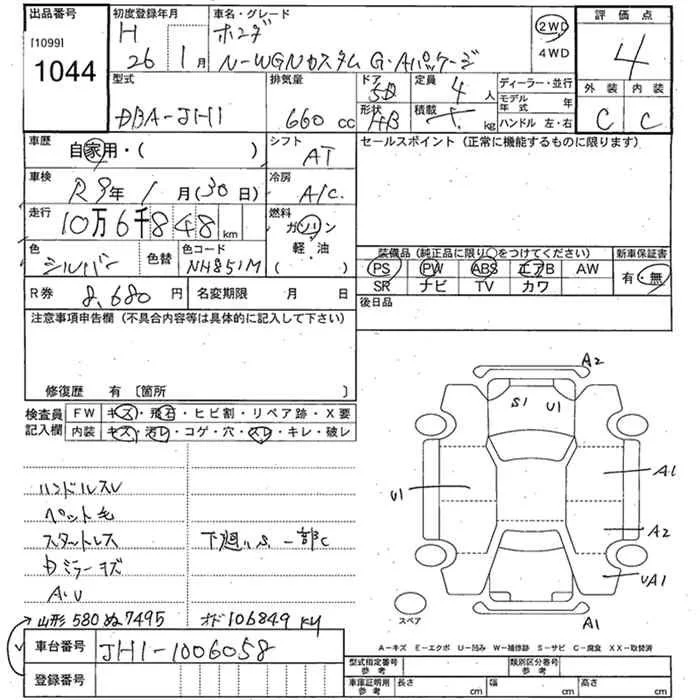 出品番号
[1099]
1044
初度登録年月
H
26 1月
車名・グレード
ホンダ
N-WGNカスタム G・Aパッケージ
2WD
4WD
評価点
4
外装 内装
C C
型式
DBA-JH1
排気量
660 cc
ドア
5D
形状
HB
定員
4人
積載
kg
ディーラー・並行
モデル年式 年
ハンドル 左・右
車歴
自家用・( )
シフト
AT
セールスポイント (正常に機能するものに限ります)
車検
R9年 1月(30日)
冷房
A/C
走行
10万6千848km
燃料
ガソリン
軽・油
( )
色
シルバー
色替
色コード
NH851M
装備品 (純正品に限り○をつけてください)
新車保証書
PS PW ABS エアB AW
有・無
SR ナビ TV カワ
R券 8,680円
名変期限 月 日
後日品
注意事項申告欄 (不具合内容等は具体的に記入して下さい)
修復歴 有 〔箇所 〕
検査員記入欄
FW キズ・飛石・ヒビ割・リペア跡・X要
内装 キズ・汚レ・コゲ・穴・スレ・キレ・破レ
ハンドルスレ
ペット毛
スタットレス
下廻りS. 一部C
Dミラーキズ
A.U
山形 580 ぬ7495
オド106849 km
車台番号 JH1-1006058
登録番号
A2
S1 U1
U1
A1
A2
UA1
A1
スペア
A－キズ E－エクボ U－凹み W－補修跡 S－サビ C－腐食 XX－取替済
型式指定番号 参考
類別区分番号 参考
車庫証明用 参考
長さ cm 幅 cm 高さ cm